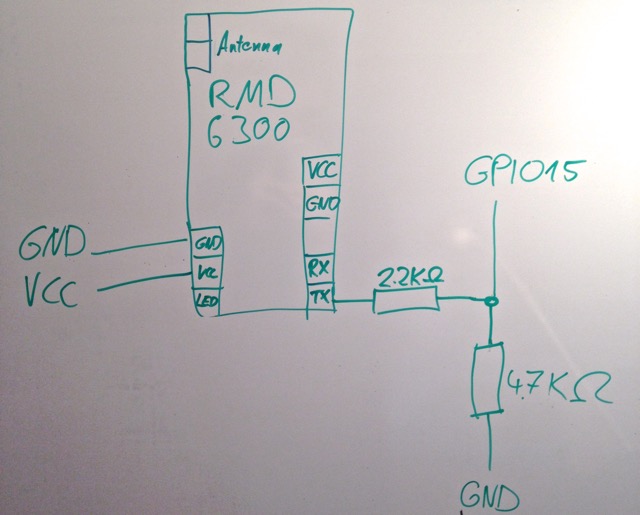 Antenna
RMD
6300
VCC
GND
RX
TX
GND
VCC
LED
GND
VCC
2.2KΩ
GPIO15
4.7KΩ
GND